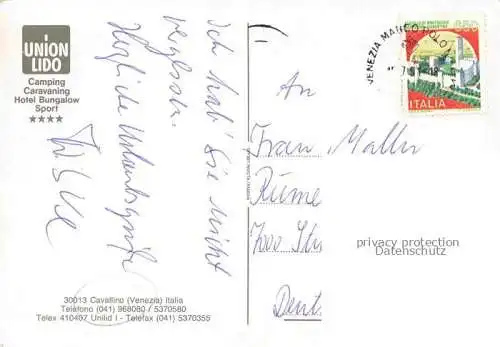 UNION
LIDO
Camping
Caravaning
Hotel Bungalow
Sport
★★★★
Ich hab' Sie nicht
vergessen.
Herzliche Urlaubsgrüße
30013 Cavallino (Venezia) Italia
Telefono (041) 968080 / 5370580
Telex 410407 Unilid I - Telefax (041) 5370355
VENEZIA MARCO POLO
650
ITALIA
An
Frau
7000
privacy protection
Datenschutz